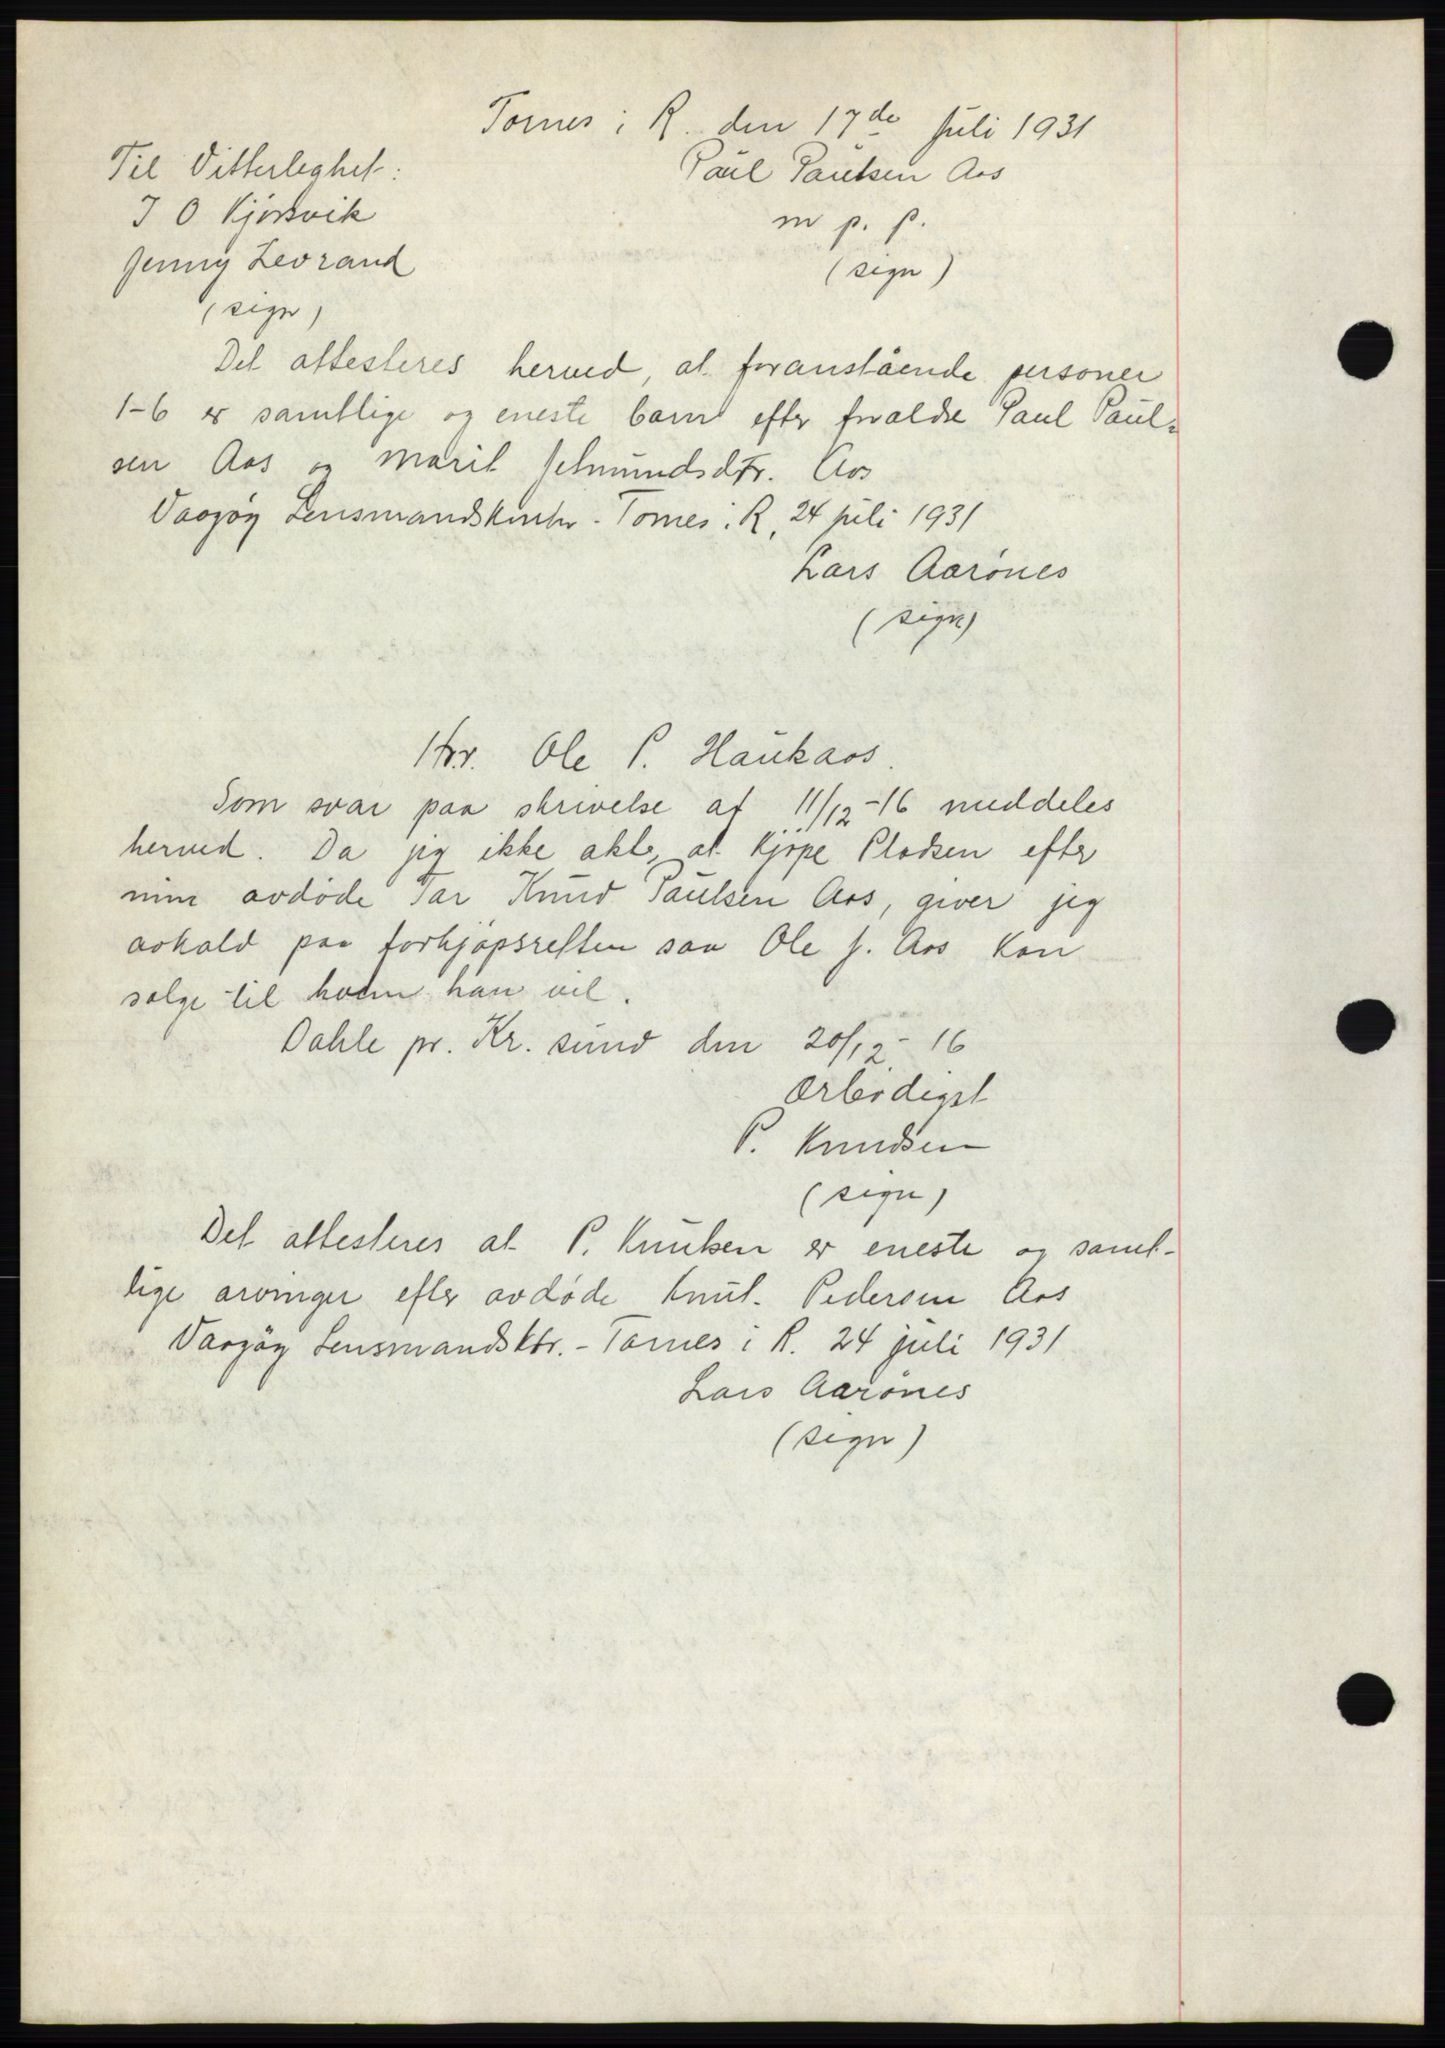 Tornes i R. den 17de juli 1931
Til Vitterleghet: Paul Paulsen Aos
J O Kjörsvik m p. p.
Jenny Levrand (sign)
(sign)
Det attesteres herved, at foranstående personer
1-6 er samtlige og eneste barn efter foraldre Paul Paul-
sen Aos og Marit Jetmundsdtr. Aos
Vaagöy Lensmandskontor - Tornes i R, 24 juli 1931
Lars Aarönes
(sign)
Hr. Ole P. Haukaos.
Som svar paa skrivelse af 11/12-16 meddeles
herved. Da jeg ikke akter at kjöpe Pladsen efter
min avdöde Far Knud Paulsen Aos, giver jeg
avkald paa forkjöpsretten saa Ole J. Aos kan
salge til hvem han vil.
Dahle pr. Kr. sund den 20/12-16
Ærbödigst
P. Knudsen
(sign)
Det attesteres at P. Knutsen er eneste og samt-
lige arvinger efter avdöde Knut Pedersen Aos
Vaagöy Lensmandsktr. - Tornes i R. 24 juli 1931
Lars Aarönes
(sign)